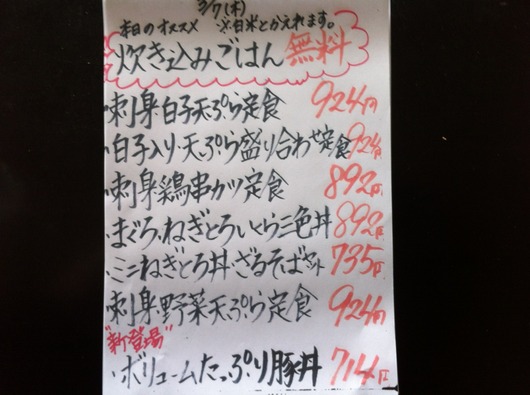 3/7(木)
本日のオススメ ※白米とかえれます。
炊き込みごはん 無料
・刺身・白子天ぷら定食 924円
・白子入り・天ぷら盛り合わせ定食 924円
・刺身・鶏串カツ定食 892円
・まぐろ・ねぎとろ・いくら三色丼 892円
・ミニねぎとろ丼・ざるそばセット 735円
・刺身・野菜天ぷら定食 924円
"新登場"
・ボリュームたっぷり豚丼 714円